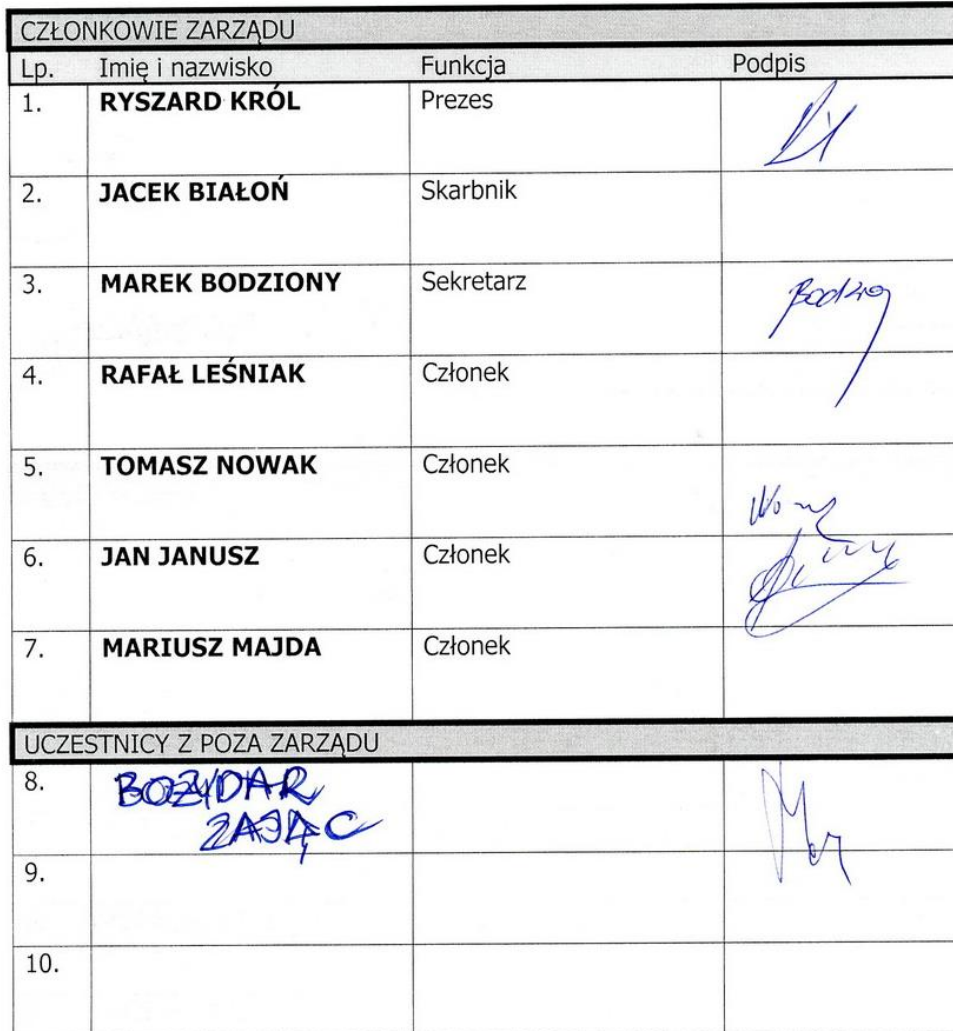 CZŁONKOWIE ZARZĄDU
Lp. Imię i nazwisko Funkcja Podpis
1. RYSZARD KRÓL Prezes
2. JACEK BIAŁOŃ Skarbnik
3. MAREK BODZIONY Sekretarz
4. RAFAŁ LEŚNIAK Członek
5. TOMASZ NOWAK Członek
6. JAN JANUSZ Członek
7. MARIUSZ MAJDA Członek
UCZESTNICY Z POZA ZARZĄDU
8. BOŻYDAR
ZAJĄC
9.
10.